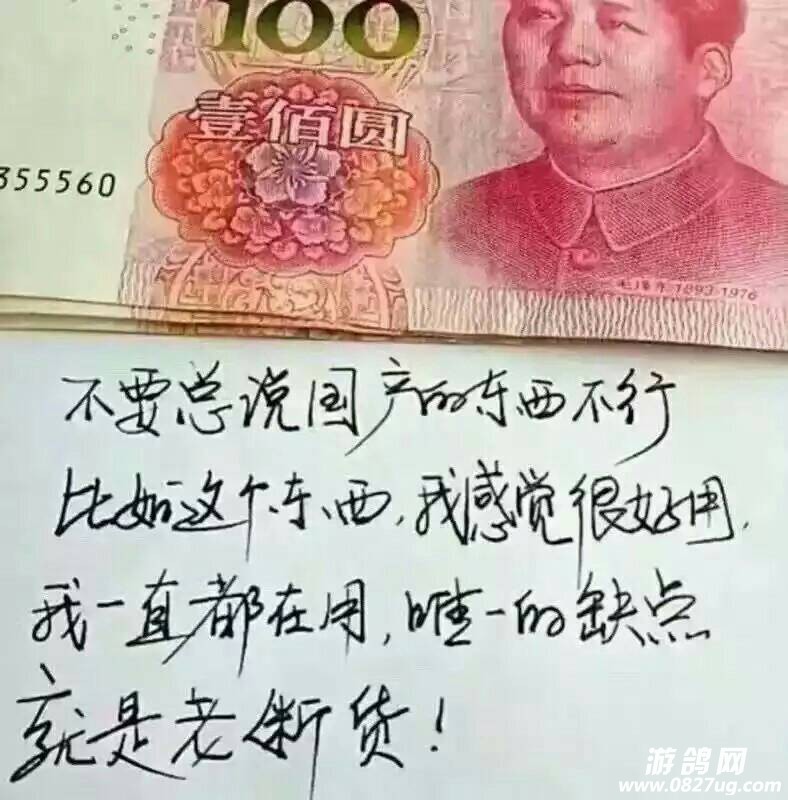 100
壹佰圆
355560
毛泽东 1893-1976
不要总说国产的东西不行
比如这个东西,我感觉很好用,
我一直都在用,唯一的缺点
就是老断货!
游鸽网
www.0827ug.com